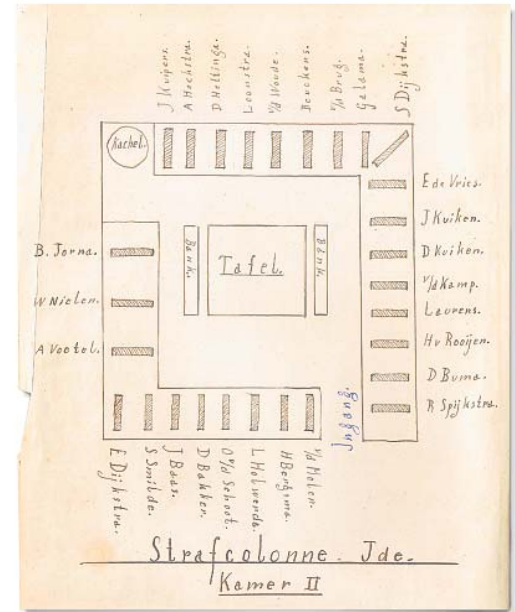 J Kuipers.
A Hoekstra.
D Hettinga.
Leenstra.
v/d Woude.
Beuckens.
v/d Brug.
Galama.
S Dijkstra.
Kachel.
E de Vries.
J Kuiken.
D Kuiken.
v/d Kamp.
Laurens.
H v Rooijen.
D Buma.
R Spijkstra.
B. Jorna.
W Nielen.
A Vootel.
Bank.
Tafel.
Bank.
Ingang.
E Dijkstra.
S Smilde.
J Baas.
D Bakker.
O v/d Schoot.
L Holwerda.
H Bergsma.
v/d Molen.
Strafcolonne. Jde.
Kamer II